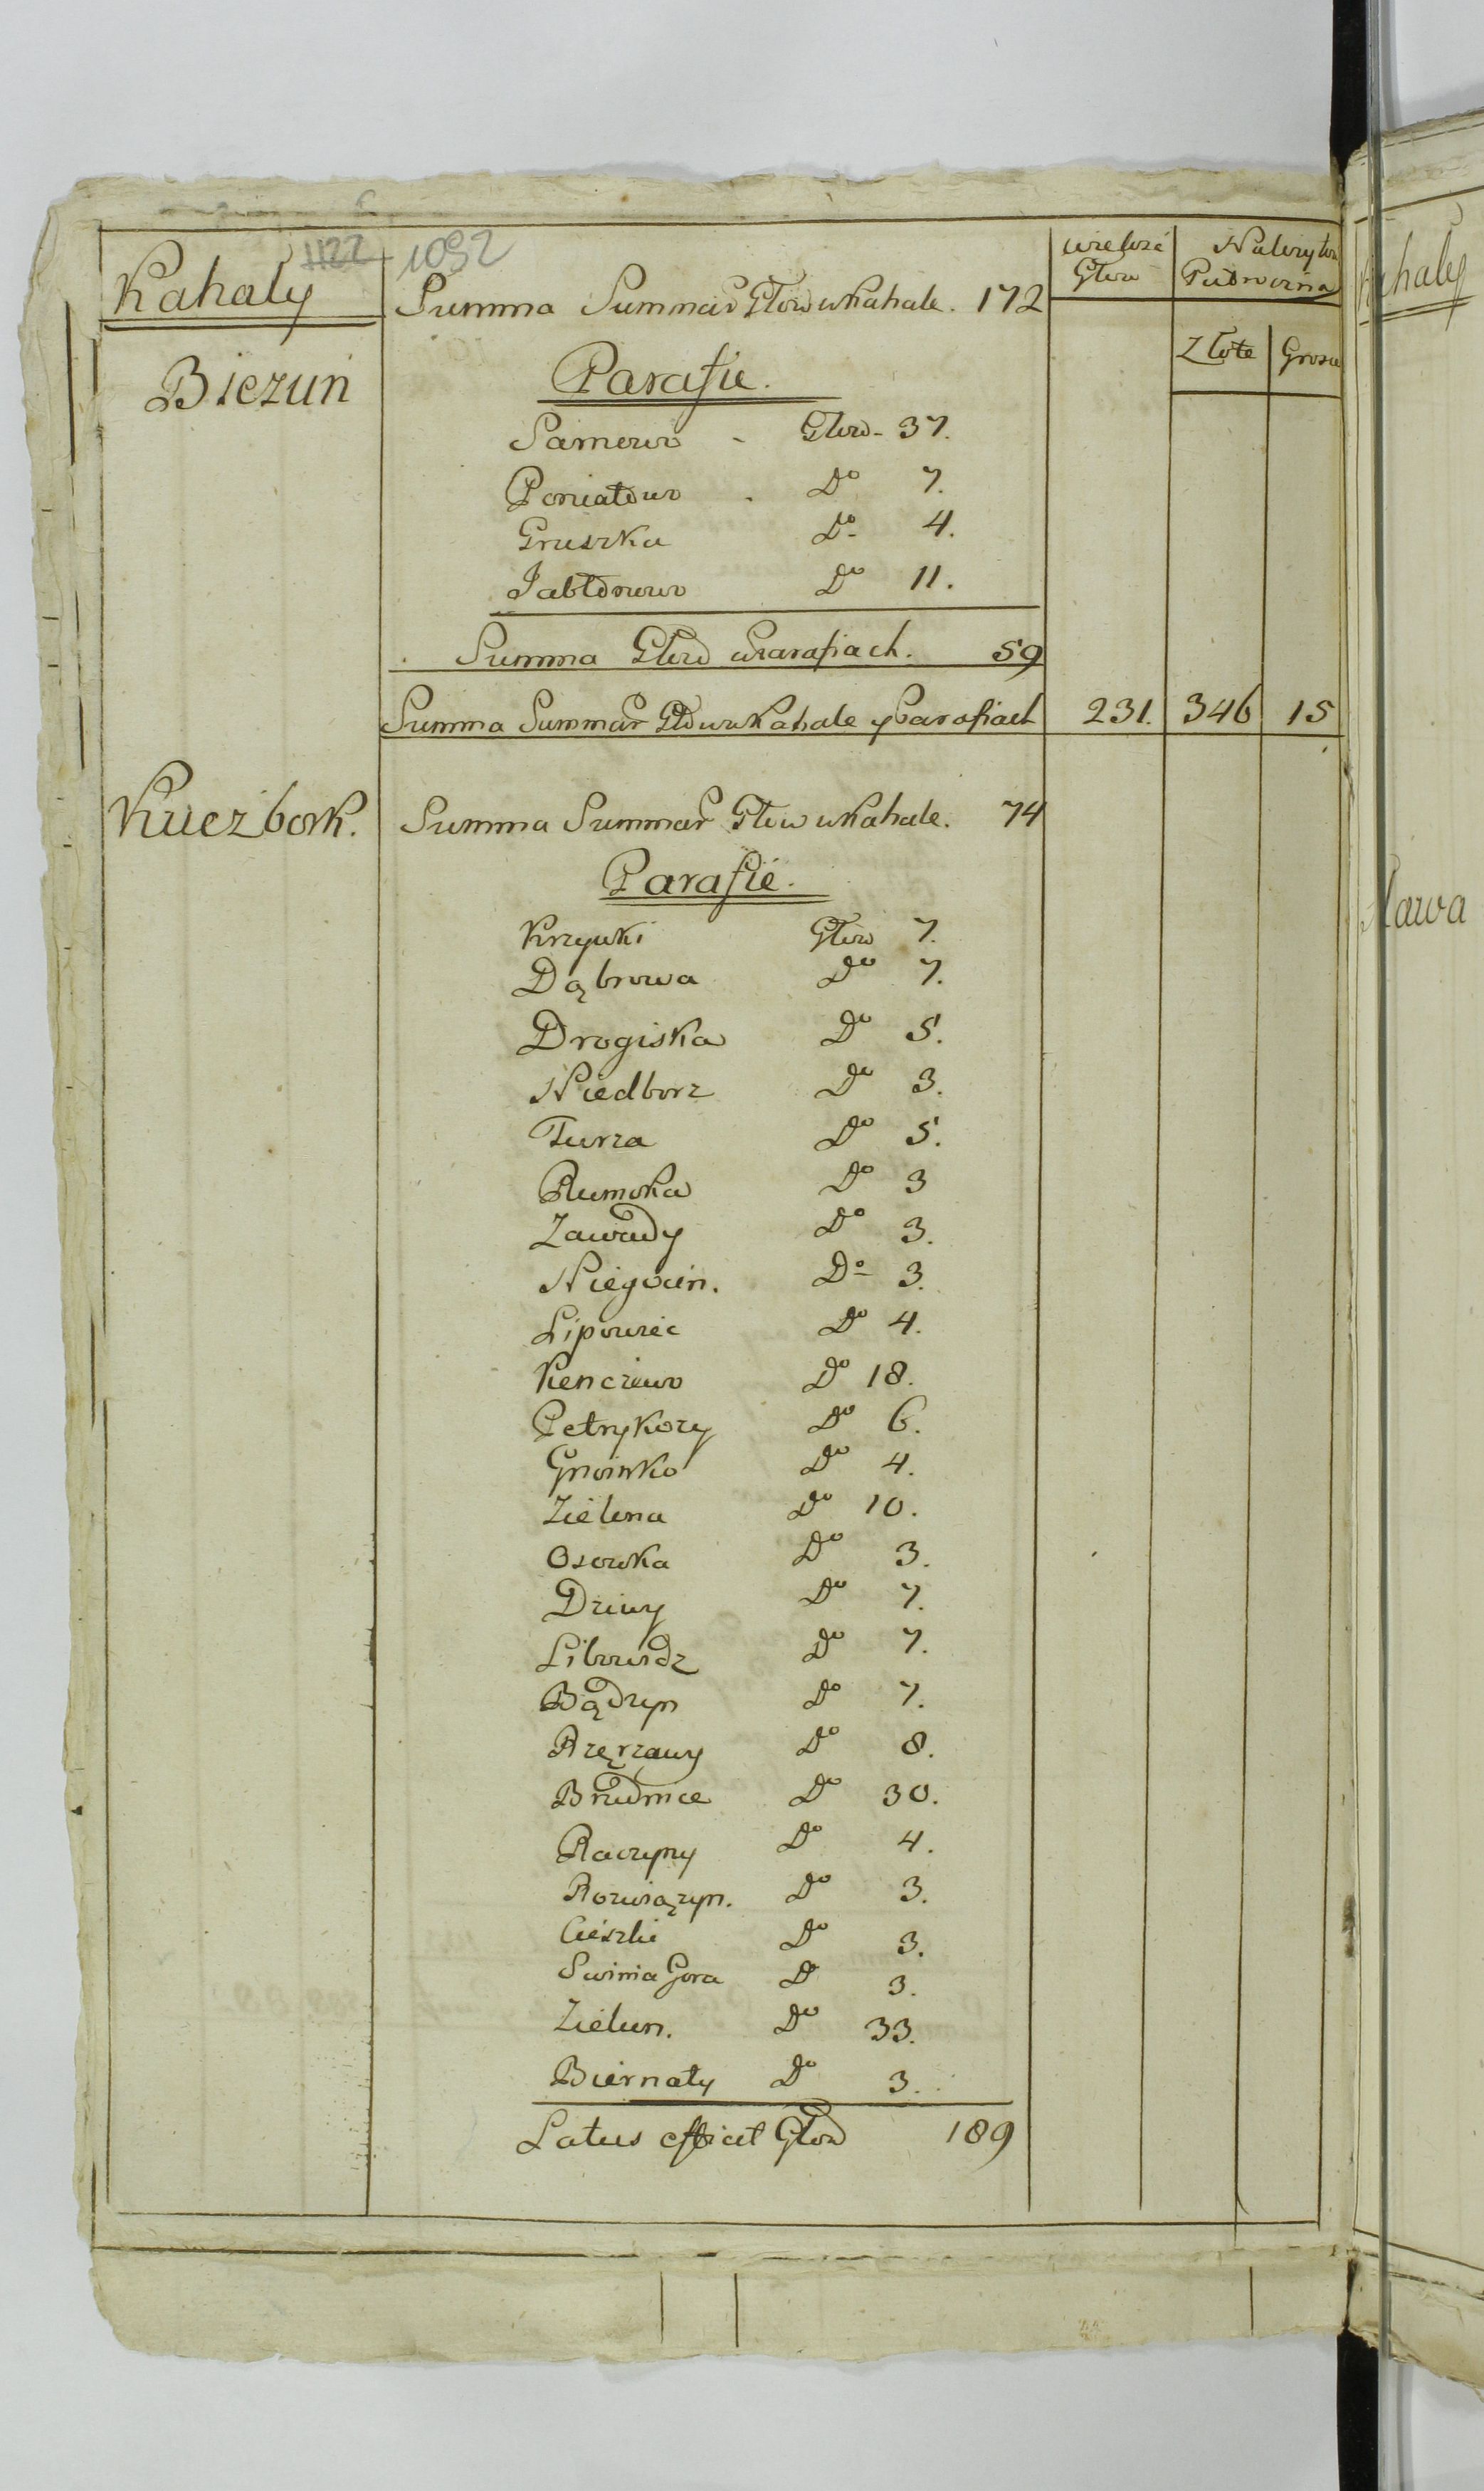 1122 1092
Kahały
Summa Summar Głow w Kahale. 172
wielość Głow
Złote Grosze
Biezuń
Parafie.
Sarnowo - Głow - 37.
Poniatowo - Do 7.
Gruszka Do 4.
Jabłonowo Do 11.
Summa Głow w Parafiach. 59
Summa Summar Głow w Kahale y Parafiach 231. 346 15
Kuczbork. Summa Summar Głow w Kahale. 74
Parafie.
Krzywki Głow 7.
Dąbrowa Do 7.
Drogiska Do 5.
Niedborz Do 3.
Turza Do 5.
Rumoka Do 3
Zawady Do 3.
Niegocin. Do 3.
Lipowiec Do 4.
Kenczewo Do 18.
Petrykozy Do 6.
Gnoinko Do 4.
Zielona Do 10.
Osowka Do 3.
Dziwy Do 7.
Libowidz Do 7.
Bądzyn Do 7.
Rzęzawy Do 8.
Brudnice Do 30.
Raczyny Do 4.
Rozwozyn. Do 3.
Cieszki Do 3.
Swinia Gora Do 3.
Zielun. Do 33.
Biernaty Do 3.
Latus efficit Głow 189